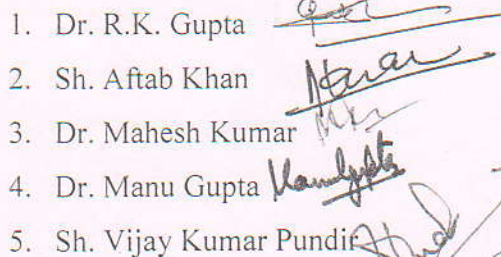 1. Dr. R.K. Gupta
2. Sh. Aftab Khan
3. Dr. Mahesh Kumar
4. Dr. Manu Gupta Manu Gupta
5. Sh. Vijay Kumar Pundir